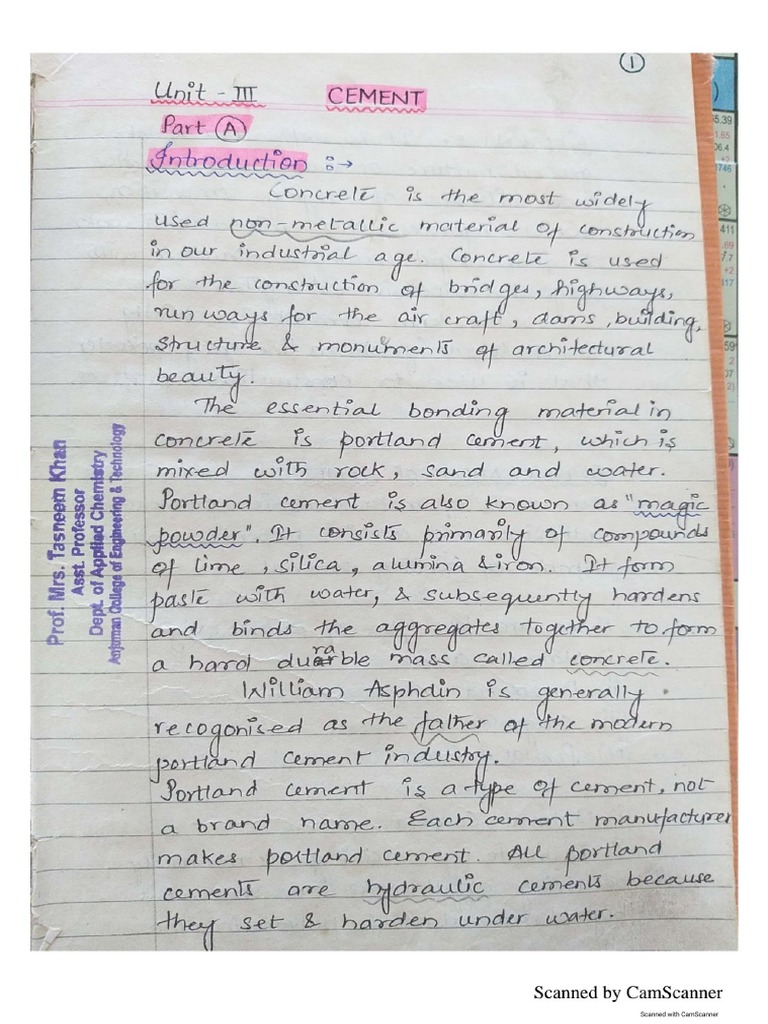 1
Unit - III CEMENT
Part A
Introduction :→
Concrete is the most widely
used non-metallic material of construction
in our industrial age. Concrete is used
for the construction of bridges, highways,
run ways for the air craft, dams, building,
structure & monuments of architectural
beauty.
The essential bonding material in
concrete is portland cement, which is
mixed with rock, sand and water.
Portland cement is also known as "magic
powder". It consists primarily of compounds
of lime, silica, alumina & iron. It form
paste with water, & subsequently hardens
and binds the aggregates together to form
a hard durable mass called concrete.
William Asphdin is generally
recogonised as the father of the modern
portland cement industry.
Portland cement is a type of cement, not
a brand name. Each cement manufacturer
makes portland cement. All portland
cements are hydraulic cements because
they set & harden under water.
Prof. Mrs. Tasneem Khan
Asst. Professor
Dept. of Applied Chemistry
Anjuman College of Engineering & Technology
5.39
1.65
06.4
+2
1746
411
.69
7.7
+2
117
59
2
07
2)
Scanned by CamScanner
Scanned with CamScanner